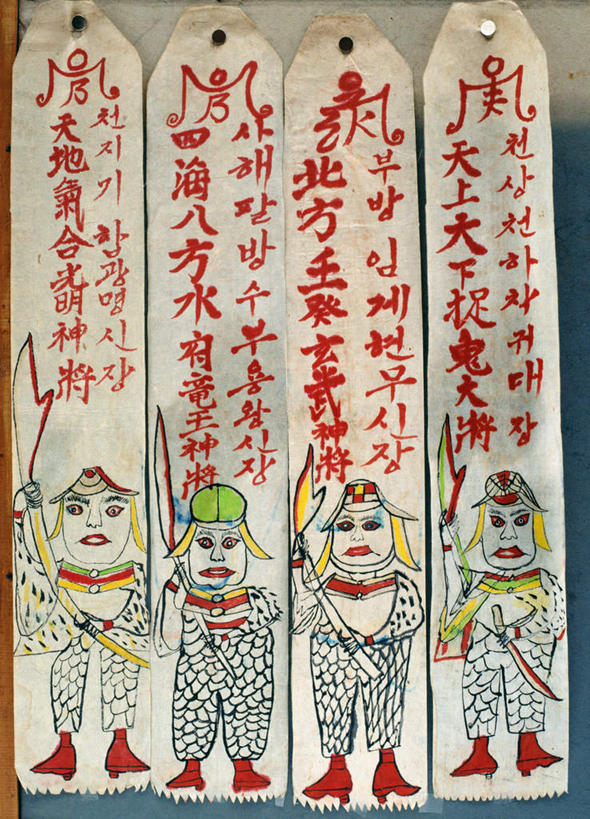 천상천하차귀대장
天上大下捉鬼大將
부방 임게현무신장
北方壬癸玄武神將
사해팔방수부용왕신장
四海八方水府竜王神將
천지기 합광명신장
天地氣合光明神將